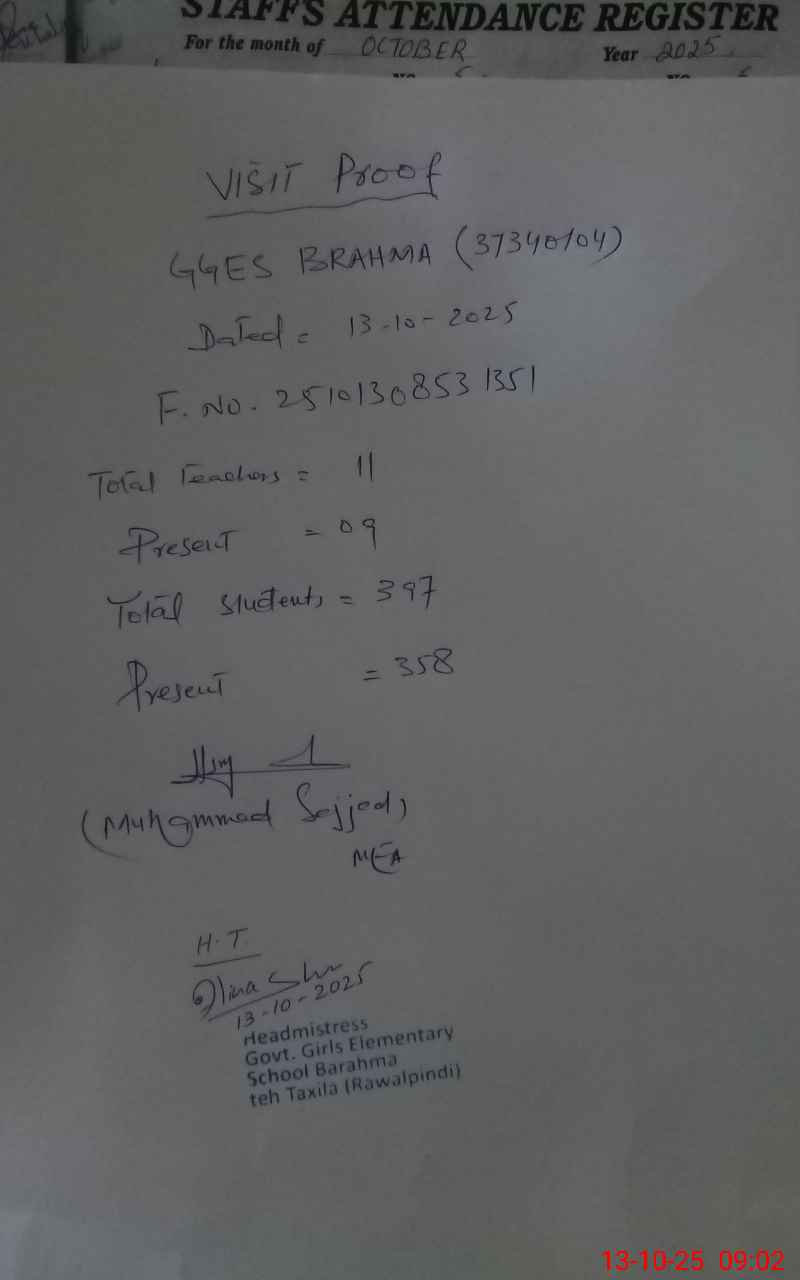 STAFFS ATTENDANCE REGISTER
For the month of OCTOBER Year 2025
VISIT Proof
GGES BRAHMA (37340104)
Dated = 13-10-2025
F. No. 2510130853 1351
Total Teachers = 11
Present = 09
Total students = 397
Present = 358
(Muhammad Sajjad)
MEA
H.T
13-10-2025
Headmistress
Govt. Girls Elementary
School Barahma
teh Taxila (Rawalpindi)
13-10-25 09:02